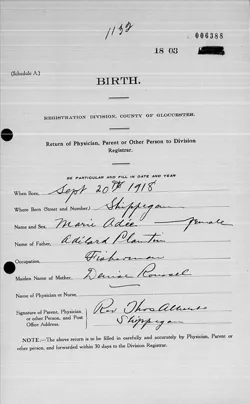 1132
006386
18 03
(Schedule A.)
BIRTH.
REGISTRATION DIVISION, COUNTY OF GLOUCESTER.
Return of Physician, Parent or Other Person to Division
Registrar.
BE PARTICULAR AND FILL IN DATE AND YEAR
When Born, Sept 20th 1918
Where Born (Street and Number), Shippegan
Name and Sex, Marie Adée female
Name of Father, Adélard Plantin
Occupation, Fisherman
Maiden Name of Mother, Roussel
Name of Physician or Nurse,
Signature of Parent, Physician, or other Person, and Post Office Address. Rev Thos Albert
Shippegan
NOTE.—The above return is to be filled in carefully and accurately by Physician, Parent or
other person, and forwarded within 30 days to the Division Registrar.